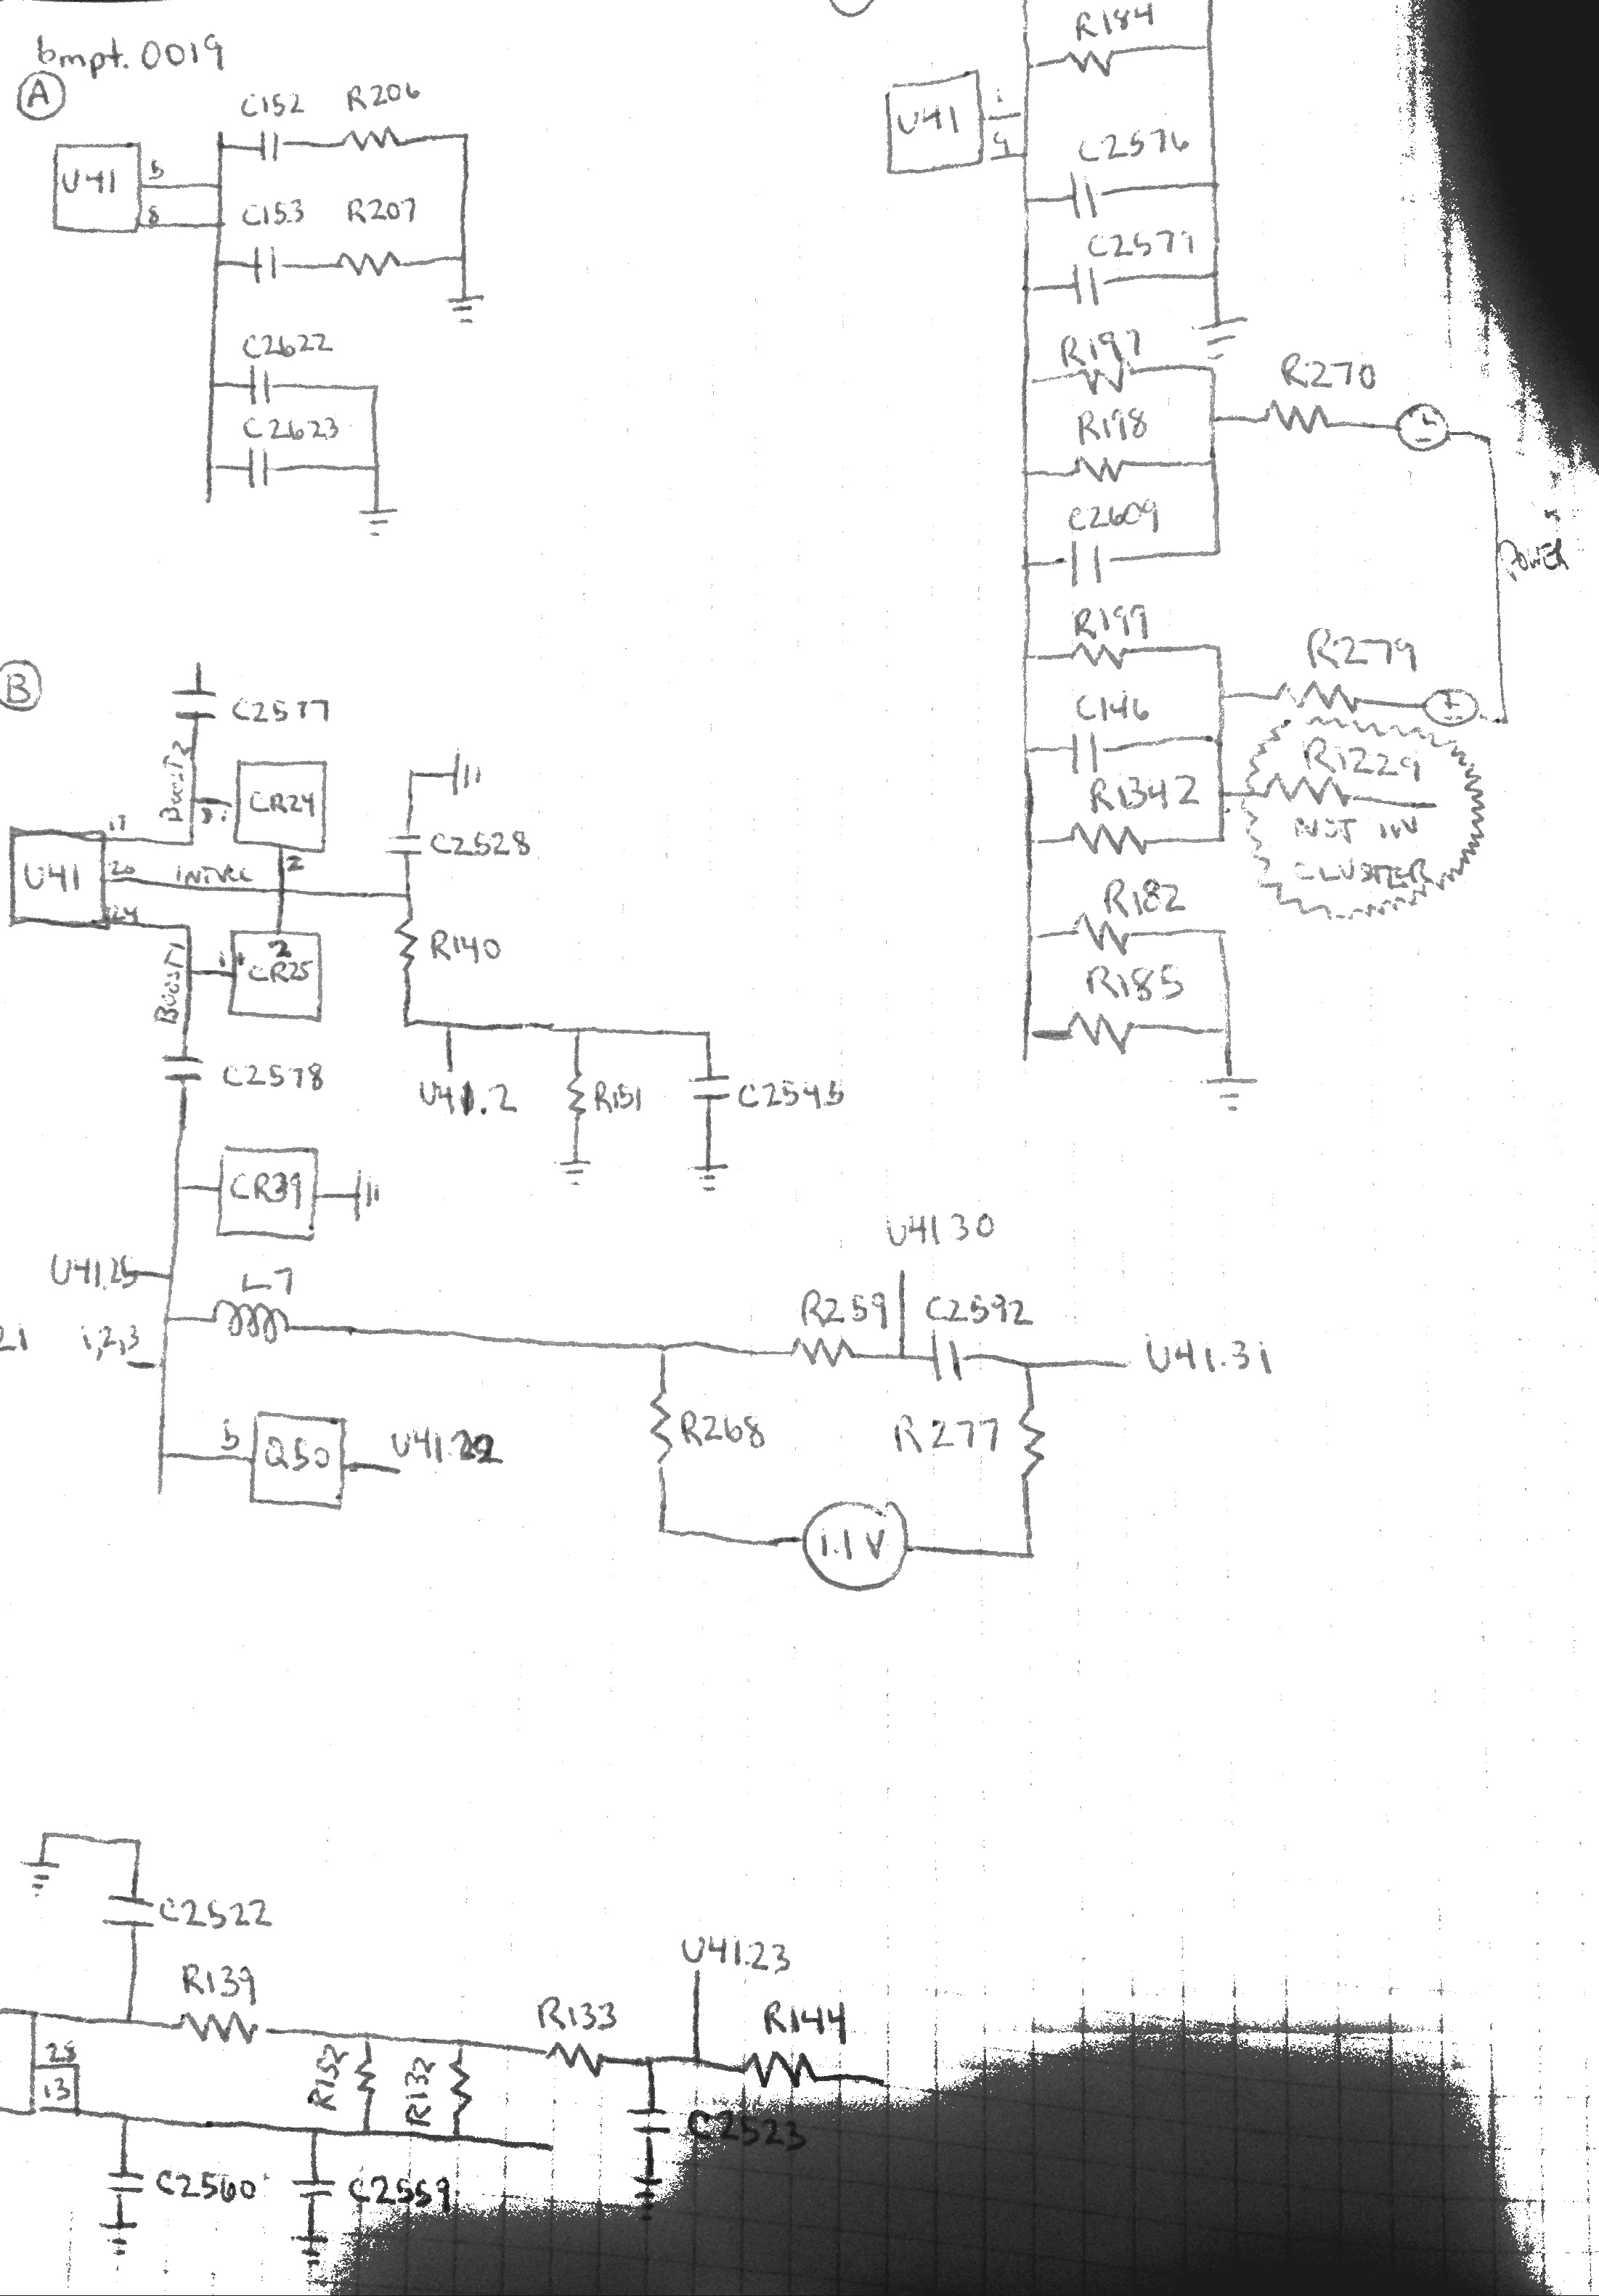 bmpt. 0019
A
C152 R206
U41
5
8
C153 R207
C2622
C2623
R184
U41
1
9
C2576
C2571
R197
R270
R198
C2609
POWER
R199
R279
C146
R1229
R1342
NOT IN
CLUSTER
R182
R185
B
C2577
BOOST2
CR24
C2528
17
U41
20
INTVCC
2
24
2
R140
CR25
BOOST1
C2578
U41.2
R151
C2545
CR39
U41.30
U41.25
L7
R259
C2592
21 1,2,3
U41.31
R268
R277
5
Q50
1.1V
C2522
U41.23
R139
R133
R144
28
13
R152
R132
C2523
C2560
C2559